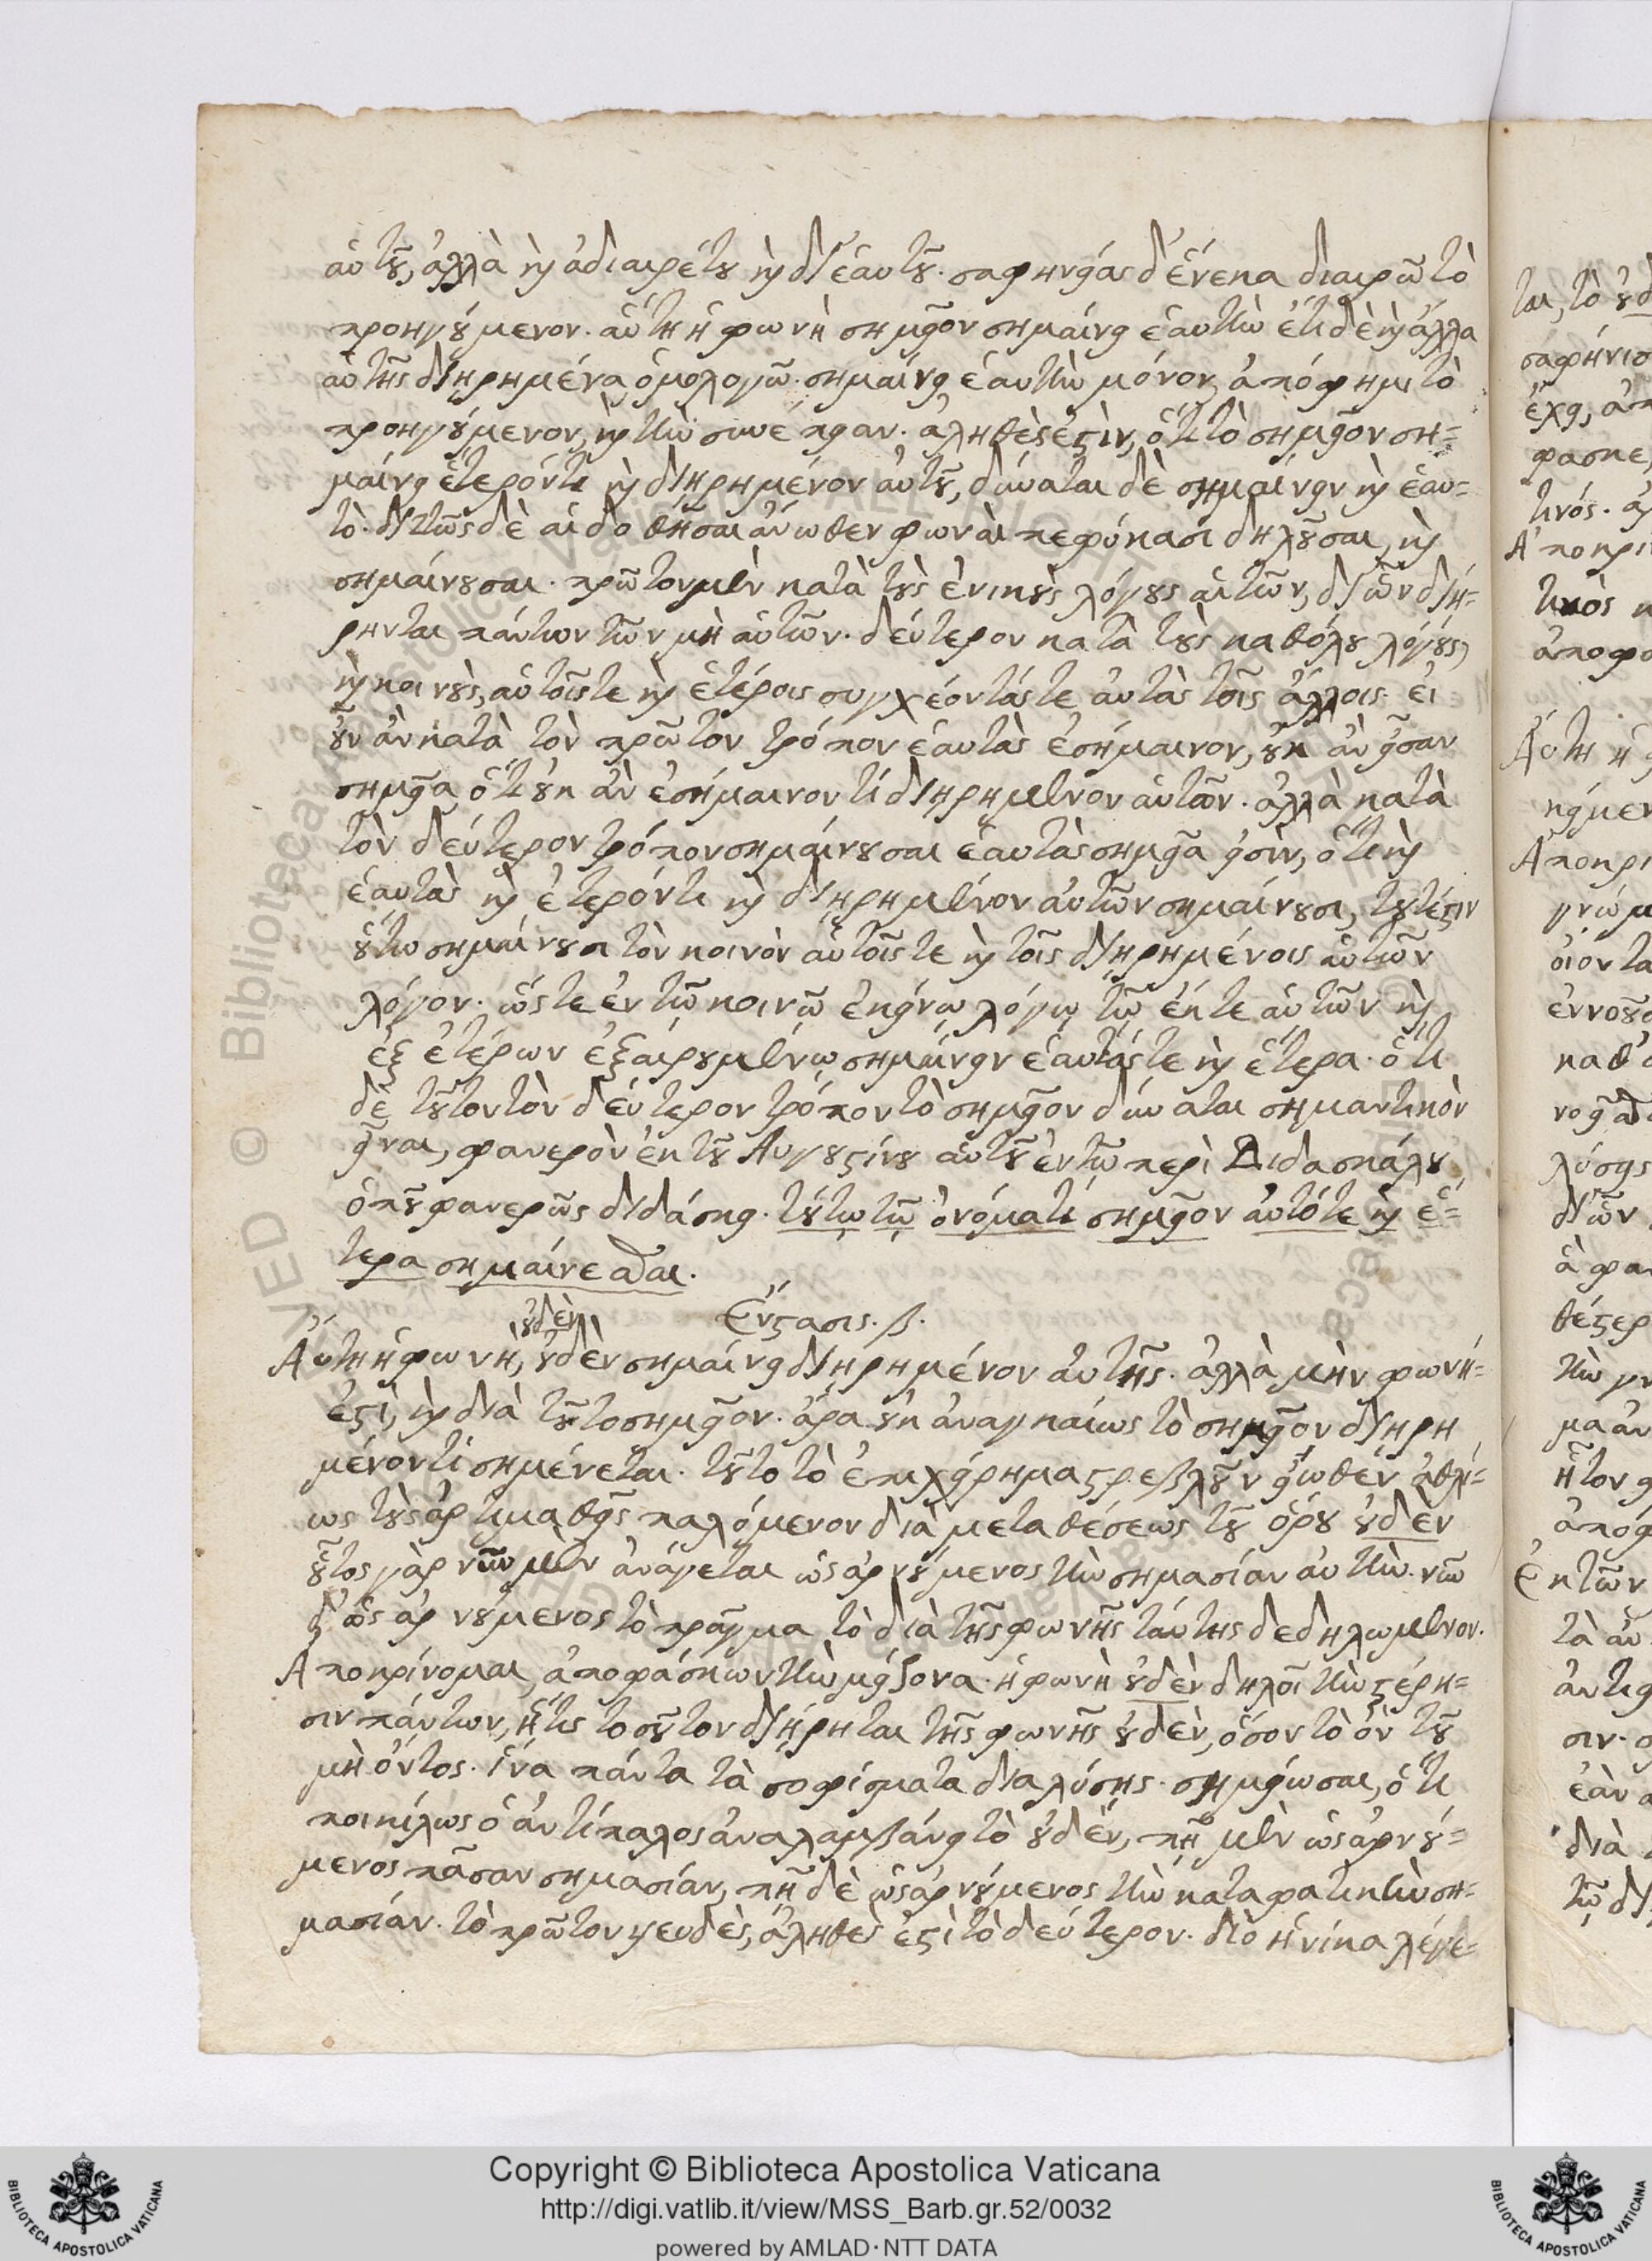 αὐτοῦ, ἀλλὰ καὶ ἀδιαιρέτου καὶ δι' ἑαυτοῦ. σαφηνείας δ' ἕνεκα διαιρῶ τὸ
προηγούμενον. αὕτη ἡ φωνὴ σημεῖον σημαίνει ἑαυτὴν ἔτι δὲ καὶ ἄλλα
αὐτῆς διῃρημένα, ὁμολογῶ. σημαίνει ἑαυτὴν μόνον, ἀπόφημι τὸ
προηγούμενον, καὶ τὴν συνέπειαν. ἀληθὲς ἐστὶν, ὅτι τὸ σημεῖον ση=
μαίνει ἕτερόν τι καὶ διῃρημένον αὐτοῦ, δύναται δὲ σημαίνειν καὶ ἑαυ=
τό. διττῶς δὲ αἱ δοθεῖσαι ἄνωθεν φωναὶ πεφύκασι δηλοῦσαι, καὶ
σημαίνουσαι. πρῶτον μὲν κατὰ τοὺς ἑνικοὺς λόγους αὐτῶν, δι' ὧν διῄ=
ρηνται πάντων τῶν μὴ αὐτῶν. δεύτερον κατὰ τοὺς καθόλου λόγους,
καὶ κοινοὺς, αὐτοῖς τε καὶ ἑτέροις συγχέοντάς τε αὐτὰς τοῖς ἄλλοις. εἰ
οὖν ἂν κατὰ τὸν πρῶτον τρόπον ἑαυτὰς ἐσήμαινον, οὐκ ἂν εἶσαν
σημεῖα ὅτι οὐκ ἂν ἐσήμαινον τὶ διῃρημένον αὐτῶν. ἀλλὰ κατὰ
τὸν δεύτερον τρόπον σημαίνουσαι ἑαυτὰς σημεῖα εἰσὶν, ὅτι καὶ
ἑαυτὰς καὶ ἕτερόν τι καὶ διῃρημένον αὐτῶν σημαίνουσι, τουτέστιν
οὕτω σημαίνουσι τὸν κοινὸν αὐτοῖς τε καὶ τοῖς διῃρημένοις αὐτῶν
λόγον. ὥστε ἐν τῷ κοινῷ ἐκείνῳ λόγῳ τῷ ἔκ τε αὐτῶν καὶ
ἐξ ἑτέρων ἐξαιρουμένῳ σημαίνειν ἑαυτάς τε καὶ ἕτερα. ὅτι
δὲ τοῦτον τὸν δεύτερον τρόπον τὸ σημεῖον δύναται σημαντικὸν
εἶναι, φανερὸν ἐκ τοῦ Αυγουστίνου αὐτοῦ ἐν τῷ περὶ Διδασκάλου
ὁποῦ φανερῶς διδάσκει. τούτῳ τῷ ὀνόματι σημεῖον αὐτό τε καὶ ἕ=
τερα σημαίνεσθαι.
Ἔνστασις. β.
οὐδὲν
Αὕτη ἡ φωνὴ, οὐδὲν σημαίνει διῃρημένον αὐτῆς. ἀλλὰ μὴν φωνή=
ἐστὶ, καὶ διὰ τοῦτο σημεῖον. ἄρα οὐκ ἀναγκαίως τὸ σημεῖον διῃρη
μένον τὶ σημένεται. τοῦτο τὸ ἐπιχείρημα στρεβλοῦν εἴωθεν ἀθλί=
ως τοὺς ἀρτιμαθεῖς παλόμενον διὰ μεταθέσεως τοῦ ὅρου οὐδὲν
οὗτος γὰρ νῦν μὲν ἀνάγεται ὡς ἀρνούμενος τὴν σημασίαν αὐτήν. νῦν
δ' ὡς ἀρνούμενος τὸ πρᾶγμα τὸ διὰ τῆς φωνῆς ταύτης δεδηλωμένον.
Αποκρίνομαι, ἀποφάσκων τὴν μείζονα. ἡ φωνὴ οὐδὲν δηλοῖ τὴν στέρη=
σιν πάντων, ἥτις τοσοῦτον διῄρηται τῆς φωνῆς οὐδὲν, ὅσον τὸ ὂν τοῦ
μὴ ὄντος. ἵνα πάντα τὰ σοφίσματα διαλύσῃς. σημείωσαι, ὅτι
ποικίλως ὁ ἀντίπαλος ἀναλαμβάνει τὸ οὐδὲν, πῇ μὲν ὡς ἀρνού=
μενος πᾶσαν σημασίαν, πῇ δὲ ὡς ἀρνούμενος τὴν καταφατικὴν ση=
μασίαν. τὸ πρῶτον ψευδὲς, ἀληθὲς ἐστὶ τὸ δεύτερον. διὸ ἡνίκα λέγε=
Copyright © Biblioteca Apostolica Vaticana
http://digi.vatlib.it/view/MSS_Barb.gr.52/0032
powered by AMLAD·NTT DATA